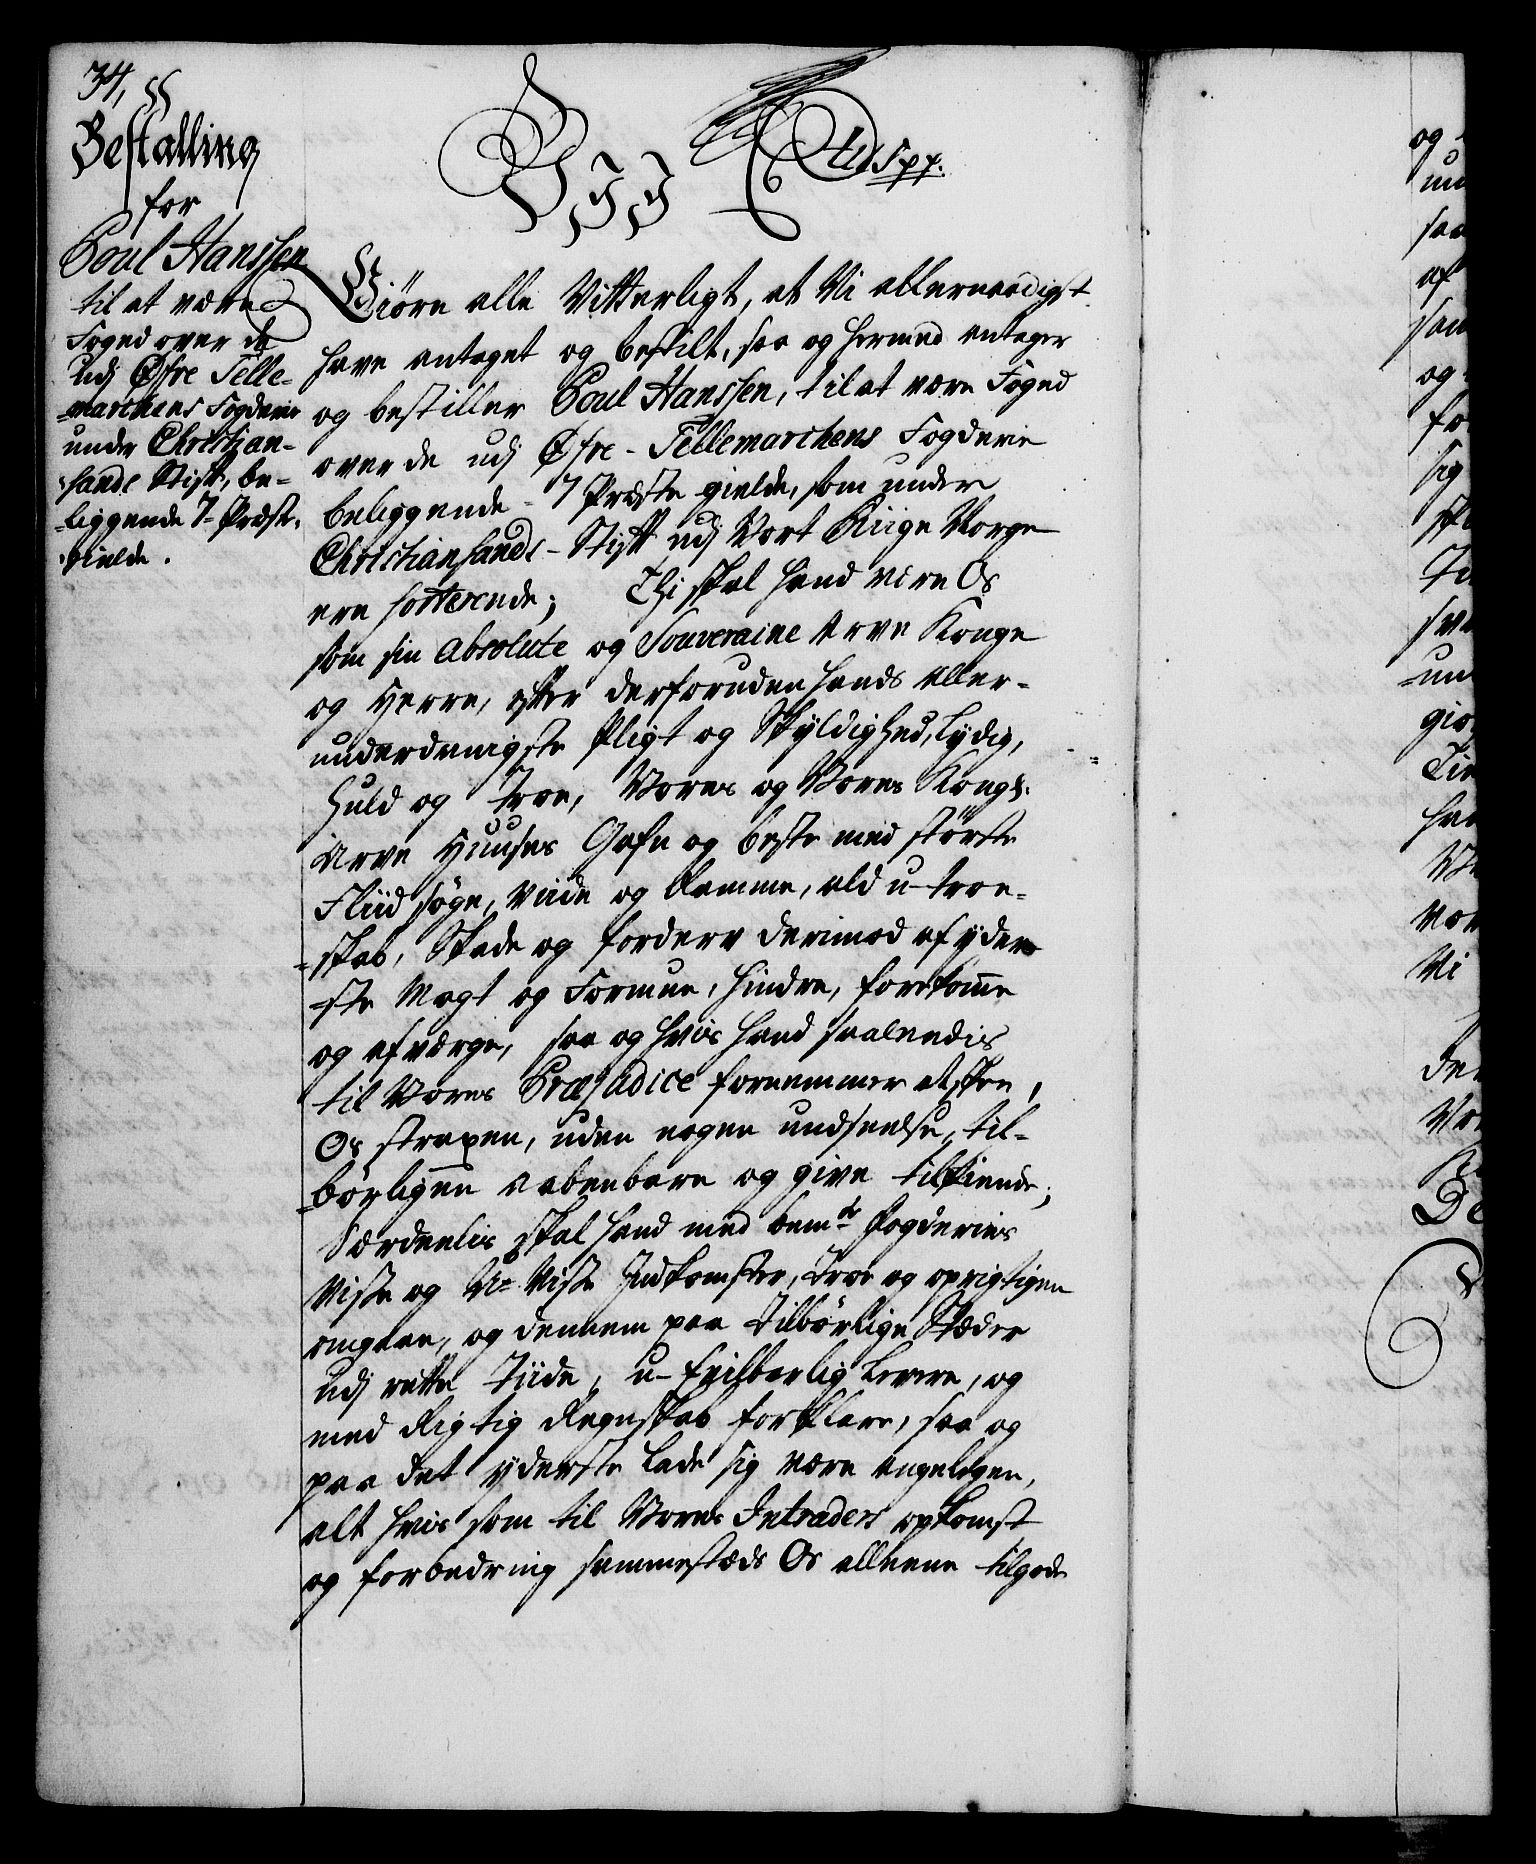 34,
Bestalling
for
Poul Hanssen
til at være
Foged over de
udj Øfre Telle-
-marchens Fogderie
under Christian-
-sands Stift, be-
-liggende 7 Præste-
-gielde.
Vjj C 6
tids pp:
Giøre alle Vitterligt, at Vi allernaadigst
have antaget og bestilt, saa og hermed antager
og bestiller Poul Hanssen, til at være Foged
over de udj Øfre-Tellemarchens Fogderie
beliggende 7 Præste gielde, som under
Christiansands-Stift udj Vort Riige Norge
ere sorterende; Thi skal hand være Os
som sin absolute og Souveraine Arve Konge
og Herre, efter derforuden hands aller-
underdanigste Pligt og Skyldighed, lydig,
huld og troe, Vores og Vores Kongl:
Arve Huuses Gafn og beste med største
Fliid søge, viide og ramme, ald u-troe-
-skab, Skade og forderv derimod af yder-
ste Magt og Formue, hindre, forekomme
og afværge, saa og hvis hand saaledis
til Vores Præjudice fornemmer at skee,
Os strapen, uden nogen undseelse, til-
-børligen aabenbare og give tilkiende;
Særdeelis skal hand med bemte Fogderies
Visse og U-Visse Indkomster, troe og oprigtigen
omgaae, og dennem paa tilbørlige Stæder
udj rette Tiide, u-feilbarlig levere, og
med Rigtig Regnskab forklare, saa og
paa det yderste lade sig være angelegen,
alt hvis som til Vores Intraders opkomst
og forbedring sammestæds Os alleene tilgode
og
saa
af
og
sig
Vi
De